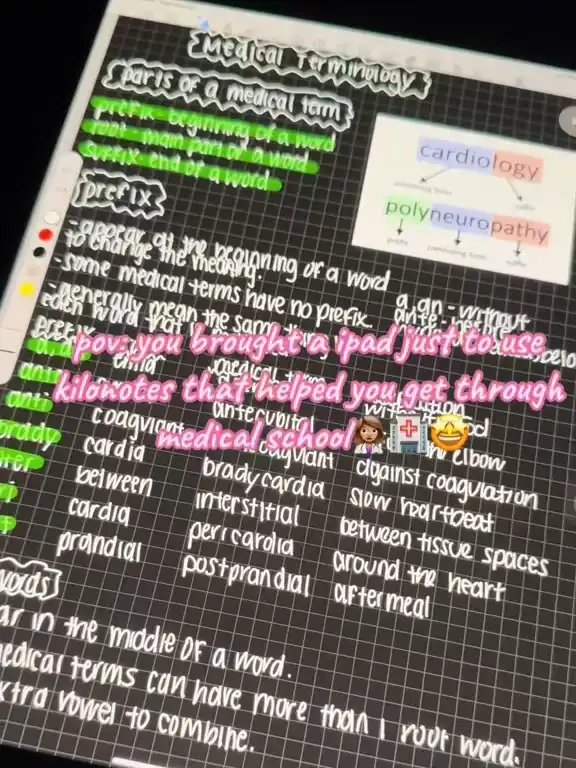 Medical Terminology
parts of a medical term
prefix- beginning of a word
root- main part of a word
suffix- end of a word
cardiology
combining form
suffix
polyneuropathy
prefix
combining form
suffix
prefix
- appear at the beginning of a word
to change the meaning.
- some medical terms have no prefix.
- generally mean the same
a, an - without
pov: you brought a ipad just to use
kilonotes that helped you get through
medical school👩🏽‍⚕️🏥🤩
prefix
medical term
anti
coagulant
antecubital
elbow
brady
cardia
against coagulation
between
bradycardia
slow heartbeat
cardia
interstitial
between tissue spaces
prandial
pericardia
around the heart
postprandial
after meal
words
in the middle of a word.
medical terms can have more than 1 root word.
extra vowel to combine.